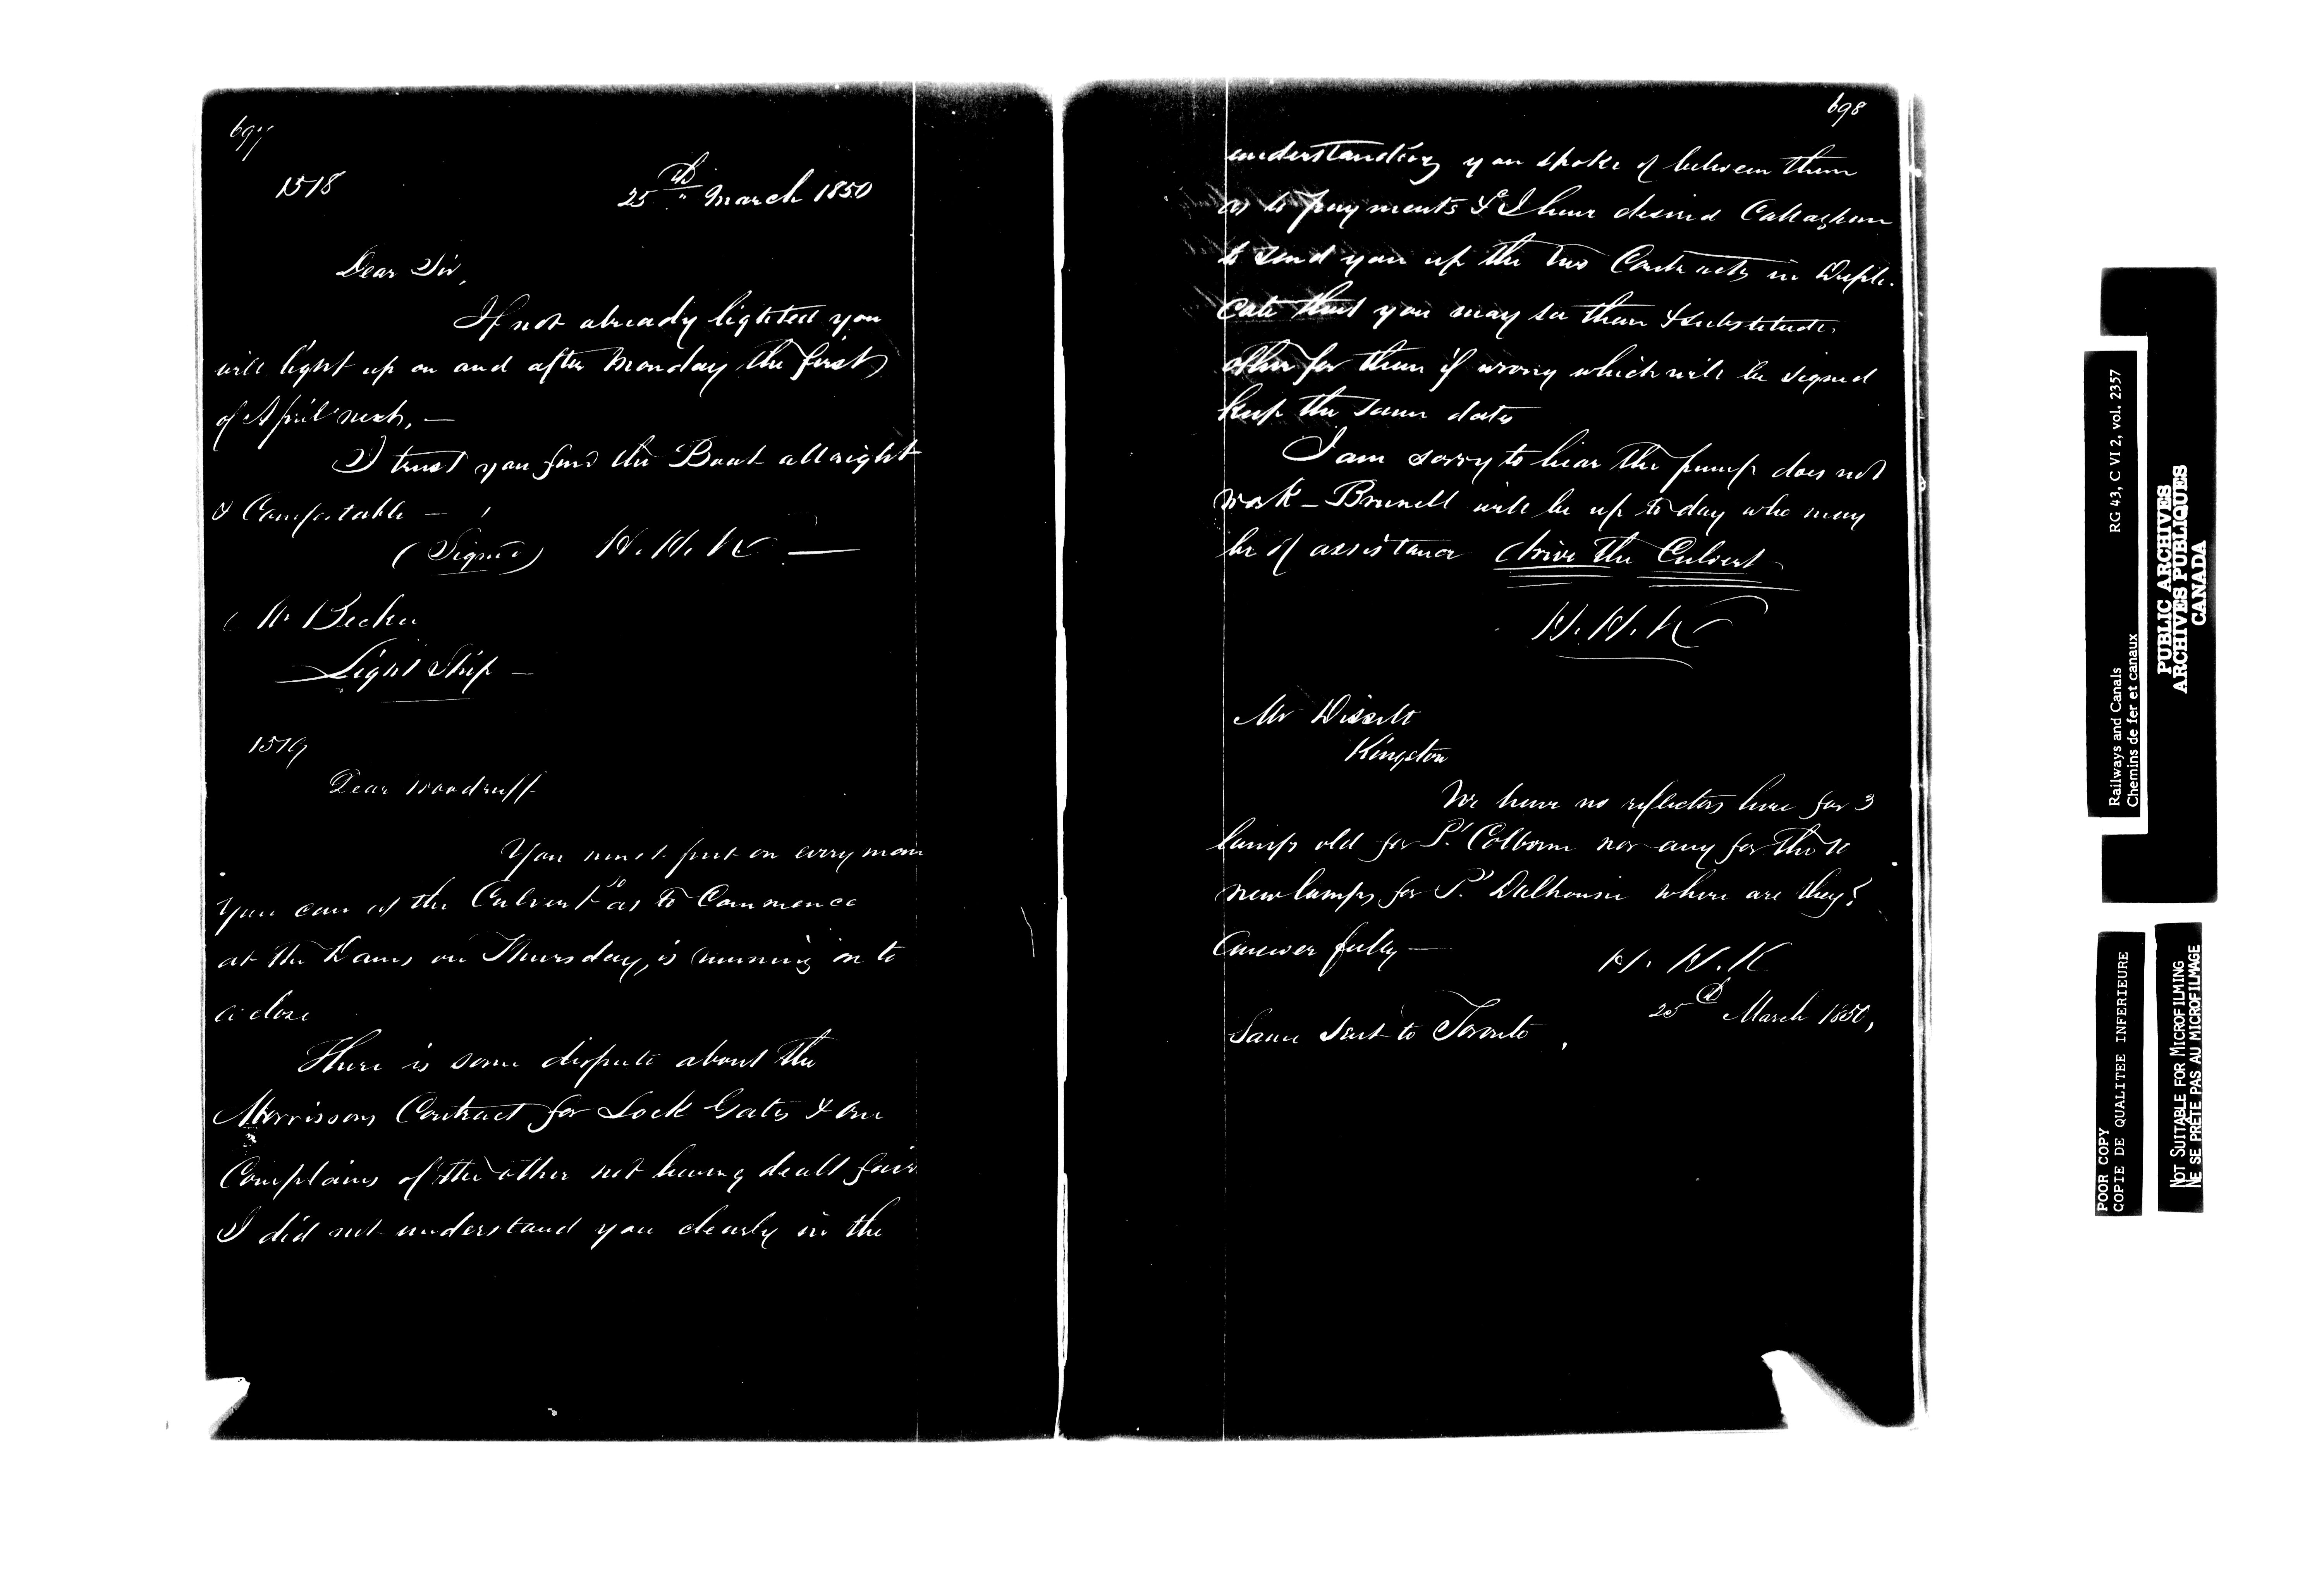 697
1518
25th March 1850
Dear Sir,
If not already lighted you
will light up on and after Monday the first
of April next, —
I trust you find the Boat all right
& Comfortable —
(Signed) H. H. K —
Mr Becker
Light Ship —
1519
Dear Woodruff
You must put on every man
you can at the Culvert so as to Commence
at the Dams on Thursday, is running on to
a close
There is some dispute about the
Morrisons Contract for Lock Gates & one
Complains of the other not having dealt fair
I did not understand you clearly in the
698
understanding you spoke of between them
as to payments & I have desired Callaghan
to send you up the two Contracts in Dupli-
cate that you may see them & substitute
other for them if wrong which will be signed
keep the same dates
I am sorry to hear the pump does not
work — Brunell will be up to day who may
be of assistance drive the Culvert
H. H. K
Mr Dissett
Kingston
We have no reflectors here for 3
lamps old for Pt Colborne nor any for the
new lamps for Pt Dalhousie where are they?
answer fully —
H. H. K
25th March 1850,
Same Sent to Toronto,
RG 43, C VI 2, vol. 2357
Railways and Canals
Chemins de fer et canaux
PUBLIC ARCHIVES
ARCHIVES PUBLIQUES
CANADA
POOR COPY
COPIE DE QUALITEE INFERIEURE
NOT SUITABLE FOR MICROFILMING
NE SE PRÊTE PAS AU MICROFILMAGE